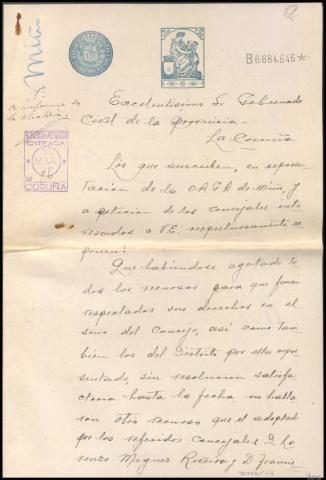 Miño
B.6.684.646*
A informe de
la
ENTRADA
MAR
CORUÑA
Excelentisimo Sr Gobernador
Civil de la Provincia-
La Coruña
Los que suscriben, en represen
tacion de la O.R.G.A de Miño, y
a peticion de los concejales inte
resados a V.E. respetuosamente ex
ponen:
Que habiéndose agotado to
dos los recursos para que fueran
respectados sus derechos en el
seno del Concejo, así como tam
bien los del Distrito por ellos repre
sentado, sin resolucion satisfac
toria hasta la fecha, no halla
ron otro recurso que el adoptado
por los referidos concejales D. Lo
renzo Miguez Roxeira y D Francis